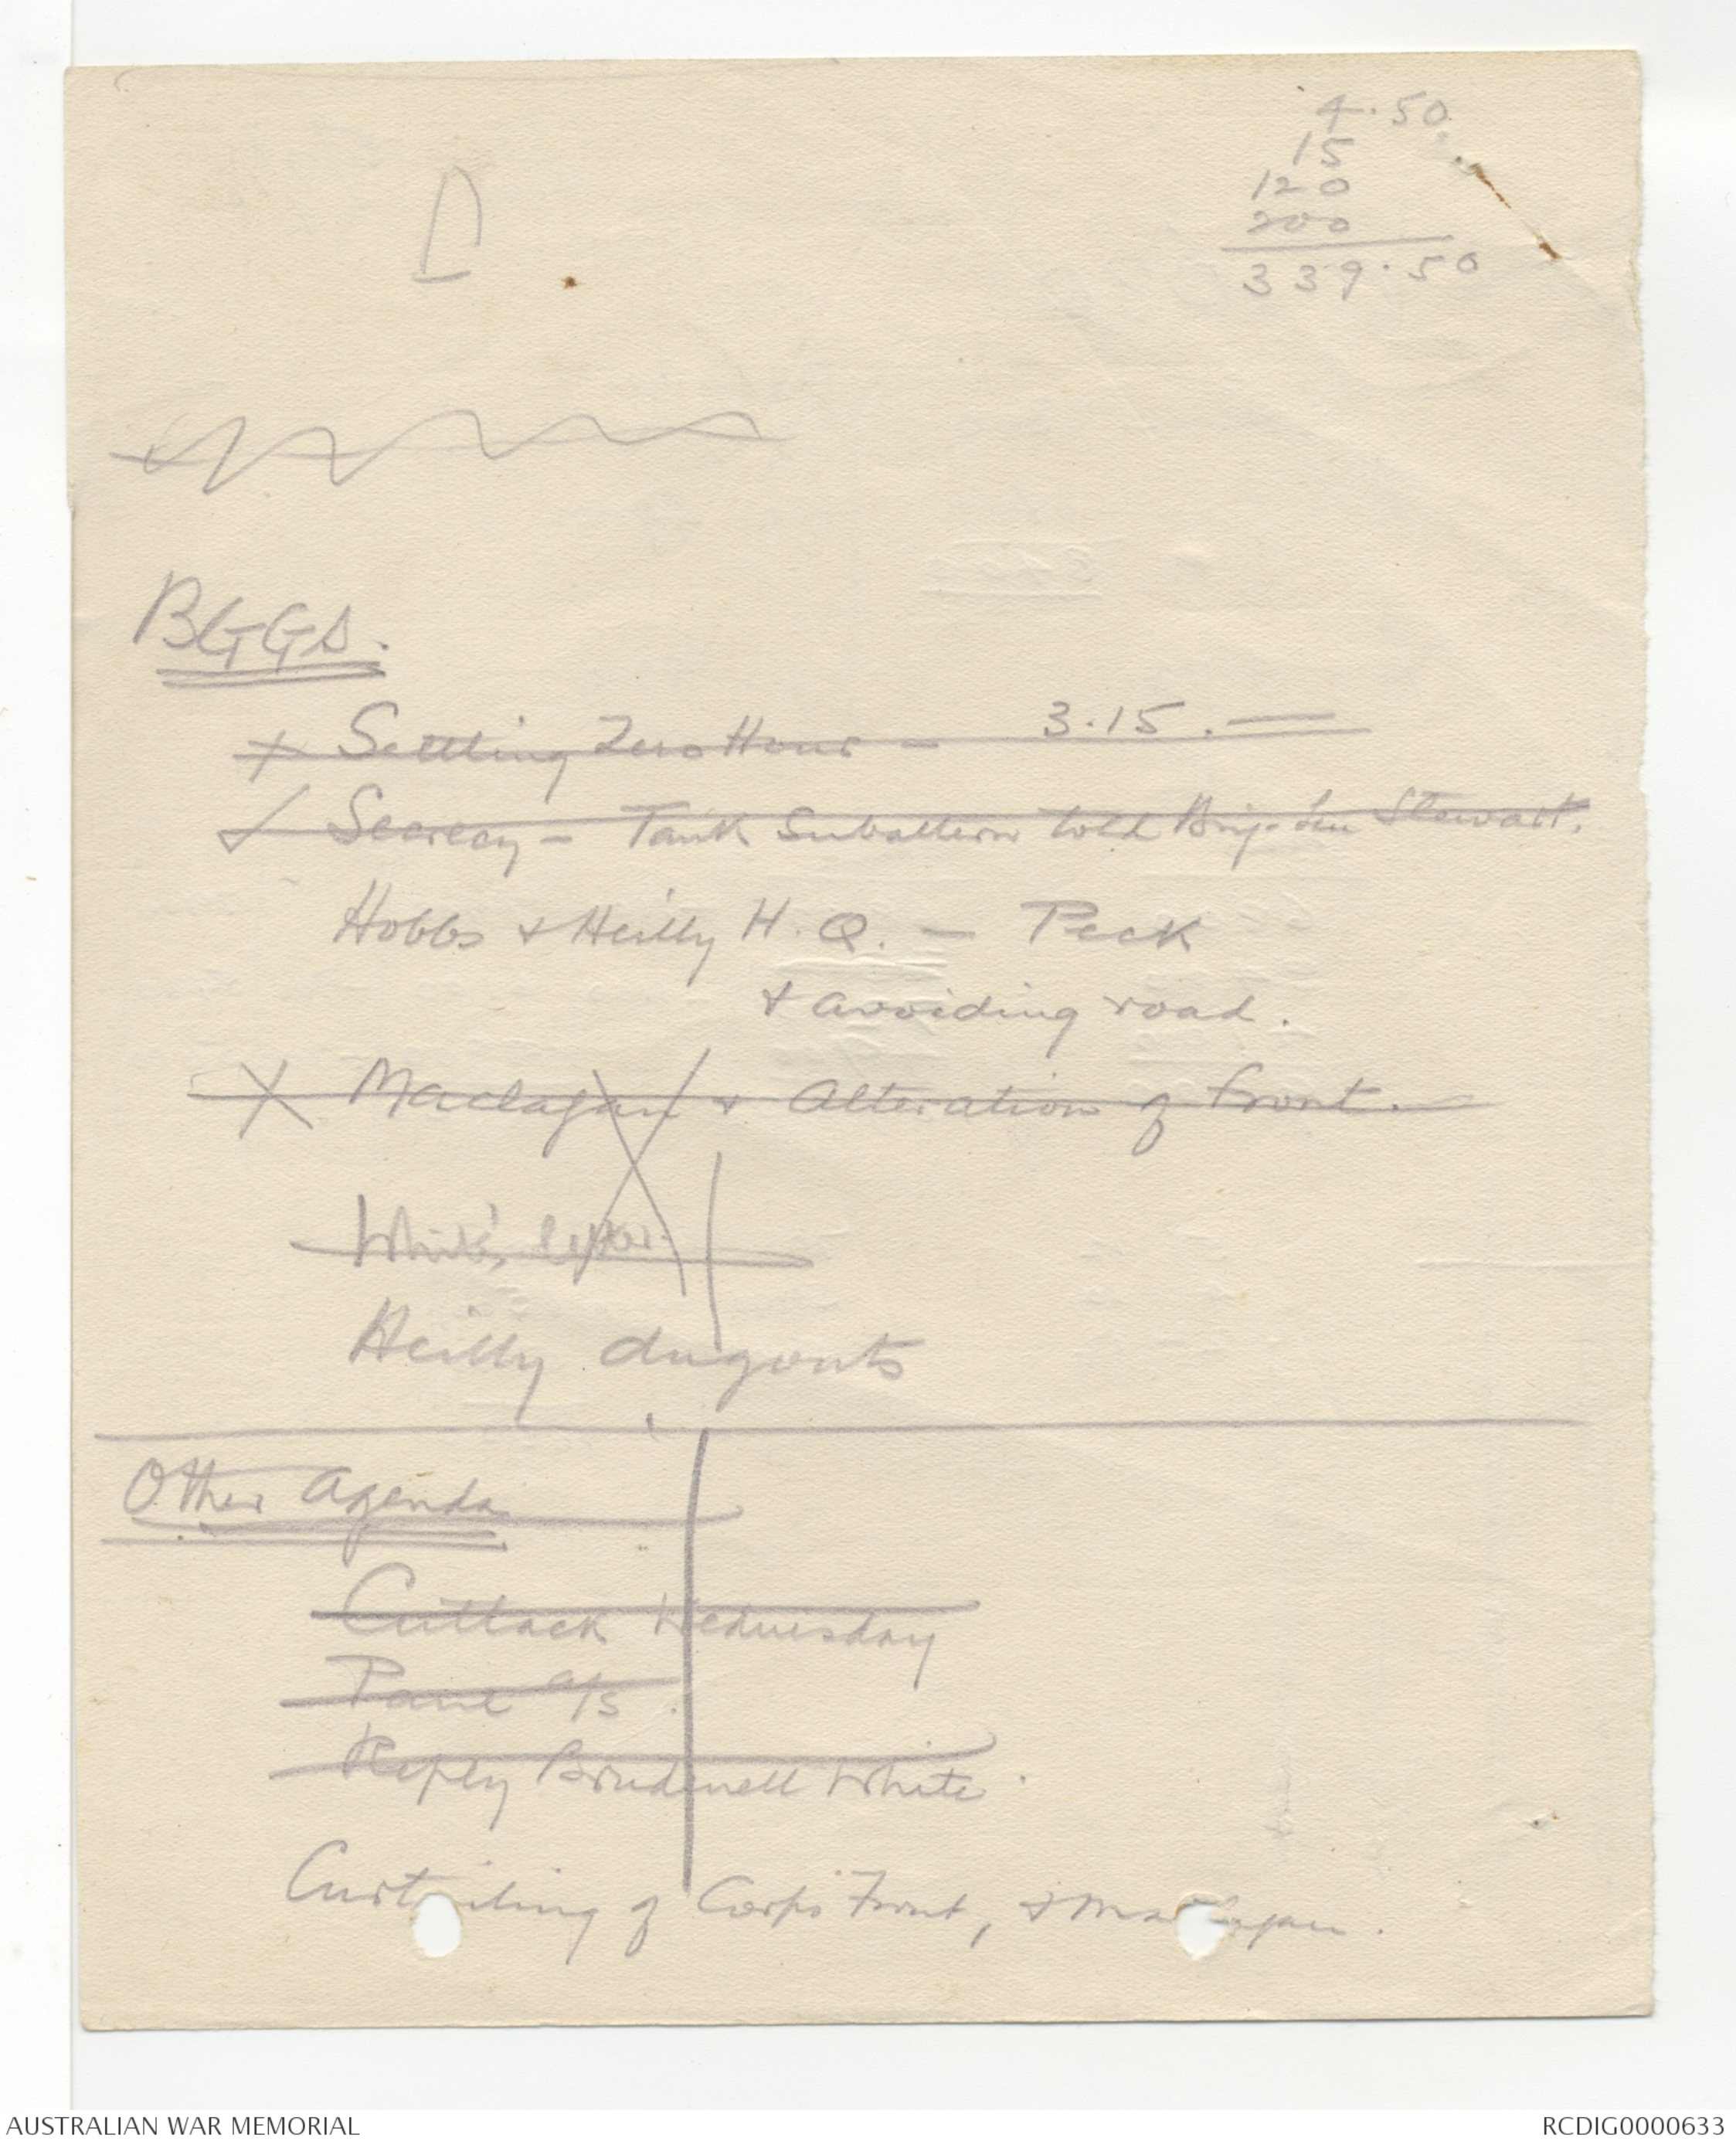 4.50
15
120
200
339.50
BGGS.
x Settling Zero Hour - 3.15.
✓ Secrecy - Tank Subaltern told Brig. Gen Stewart.
Hobbs & Heilly H.Q. - Peck
& avoiding road.
X Maclagan & Alteration of front.
White's letter.
Heilly dugouts
Other Agenda
Cutlack Wednesday
a/s.
Reply Brudenell White.
Curtailing of Corps Front, & Maclagan.
AUSTRALIAN WAR MEMORIAL
RCDIG0000633